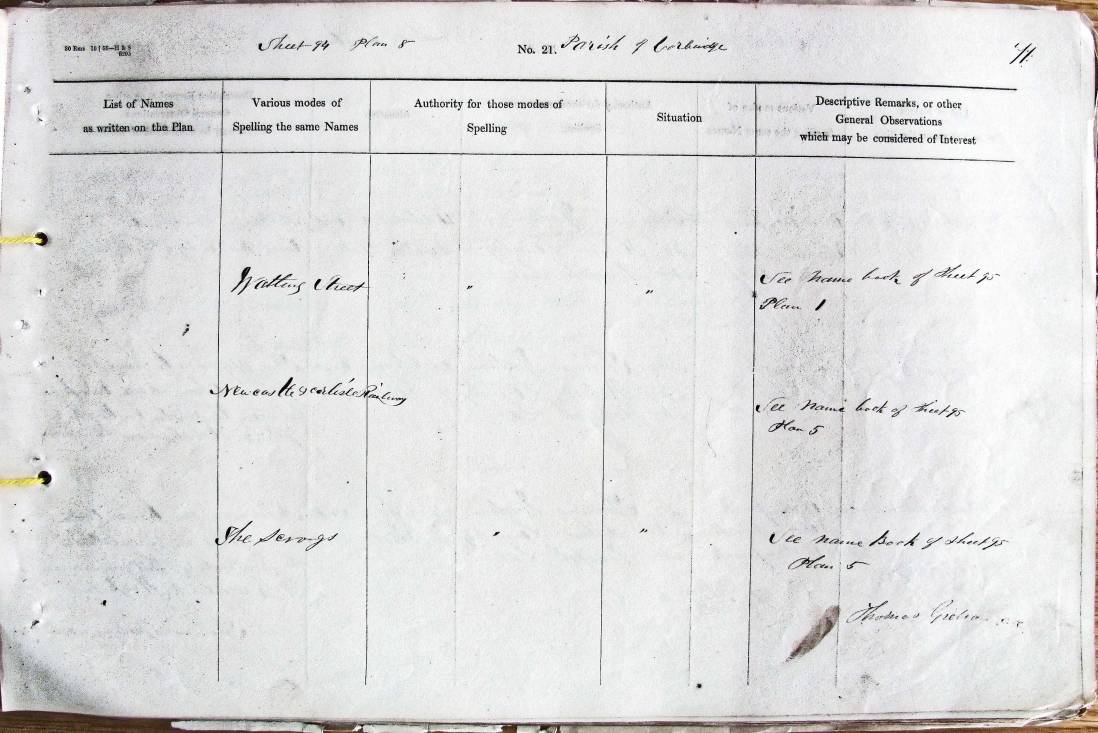 Sheet 94 Plan 8
No. 21. Parish of Corbridge
List of Names
as written on the Plan
Various modes of
Spelling the same Names
Authority for those modes of
Spelling
Situation
Descriptive Remarks, or other
General Observations
which may be considered of Interest
Watling Street " " See Name book of Sheet 95
Plan 1
Newcastle & Carlisle Railway See Name book of Sheet 95
Plan 5
The Scrogs " " See name Book of Sheet 95
Plan 5
Thomas